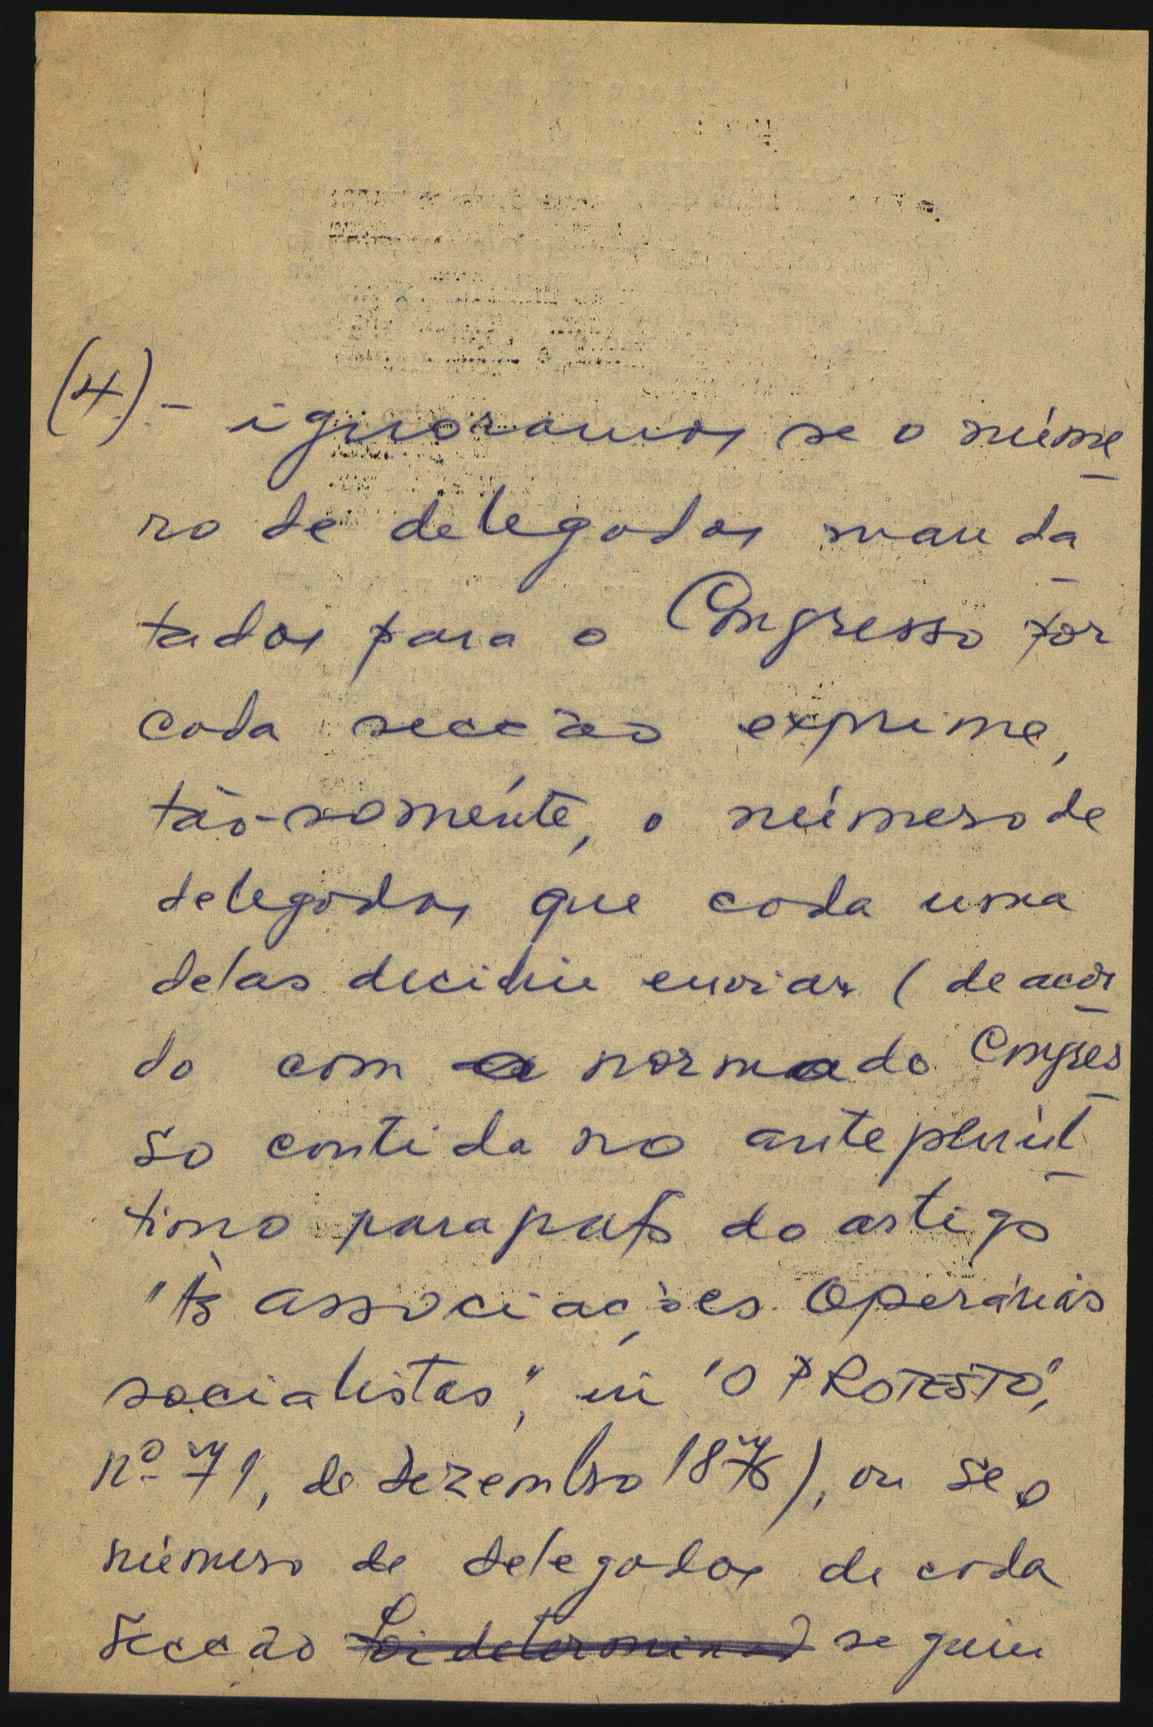 (4) - ignoramos se o núme
ro de delegados manda
tados para o Congresso por
cada secção exprime,
tão-sòmente, o número de
delegados que cada uma
delas decidiu enviar (de acôr
do com a norma do Congres
so contida no antepenúl
timo parágrafo do artigo
"Às associações Operárias
socialistas", in "O PROTESTO",
nº 71, de Dezembro 1876), ou se o
número de delegados de cada
Secção foi determinado seguiu